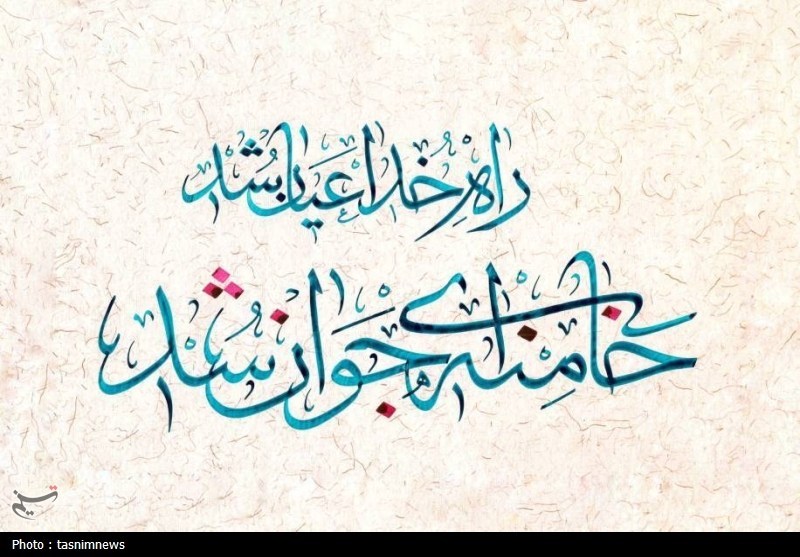 راهِ خُدا عَیان بشُد
خامنه‌ای جَوان شُد
تسنیم
Photo : tasnimnews